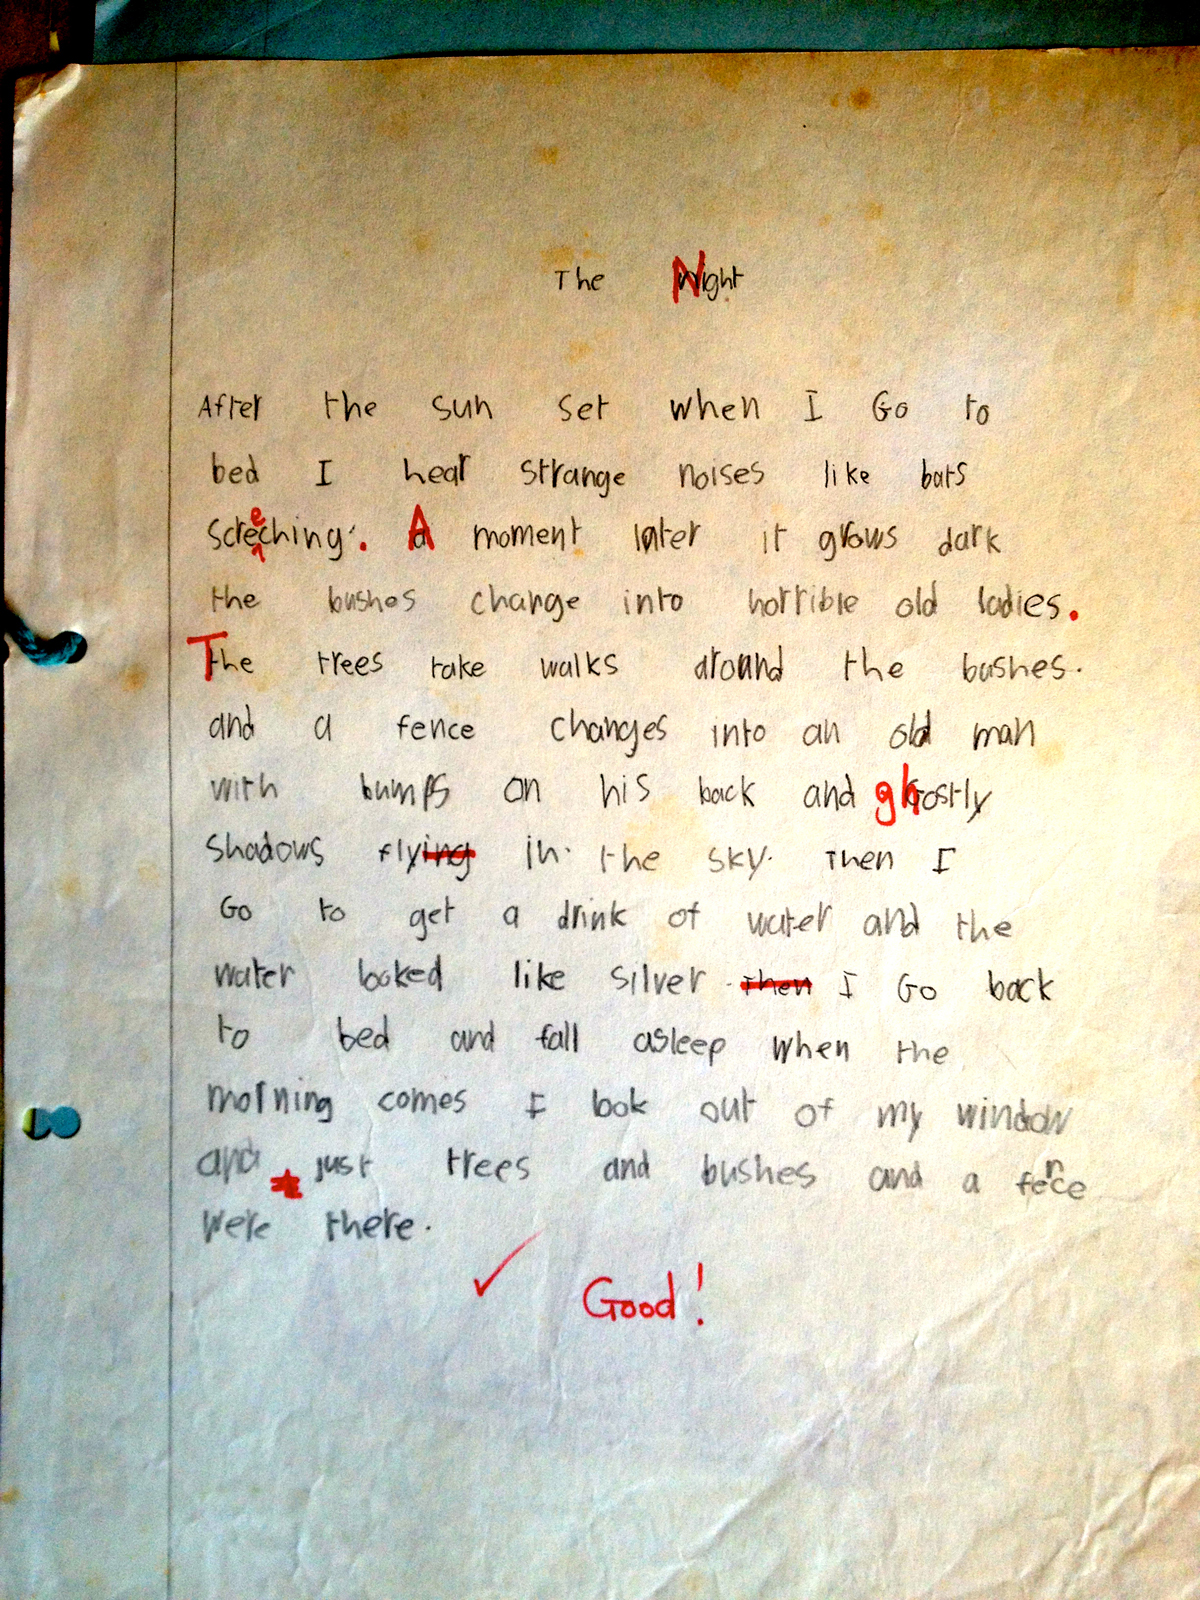 The Night
After the sun set when I Go to
bed I hear strange noises like bats
screeching. A moment later it grows dark
the bushes change into horrible old ladies.
The trees take walks around the bushes.
and a fence changes into an old man
with bumps on his back and ghostly
shadows flying in the sky. Then I
Go to get a drink of water and the
water looked like silver. then I Go back
to bed and fall asleep when the
morning comes I look out of my window
and just trees and bushes and a fence
were there.
Good!